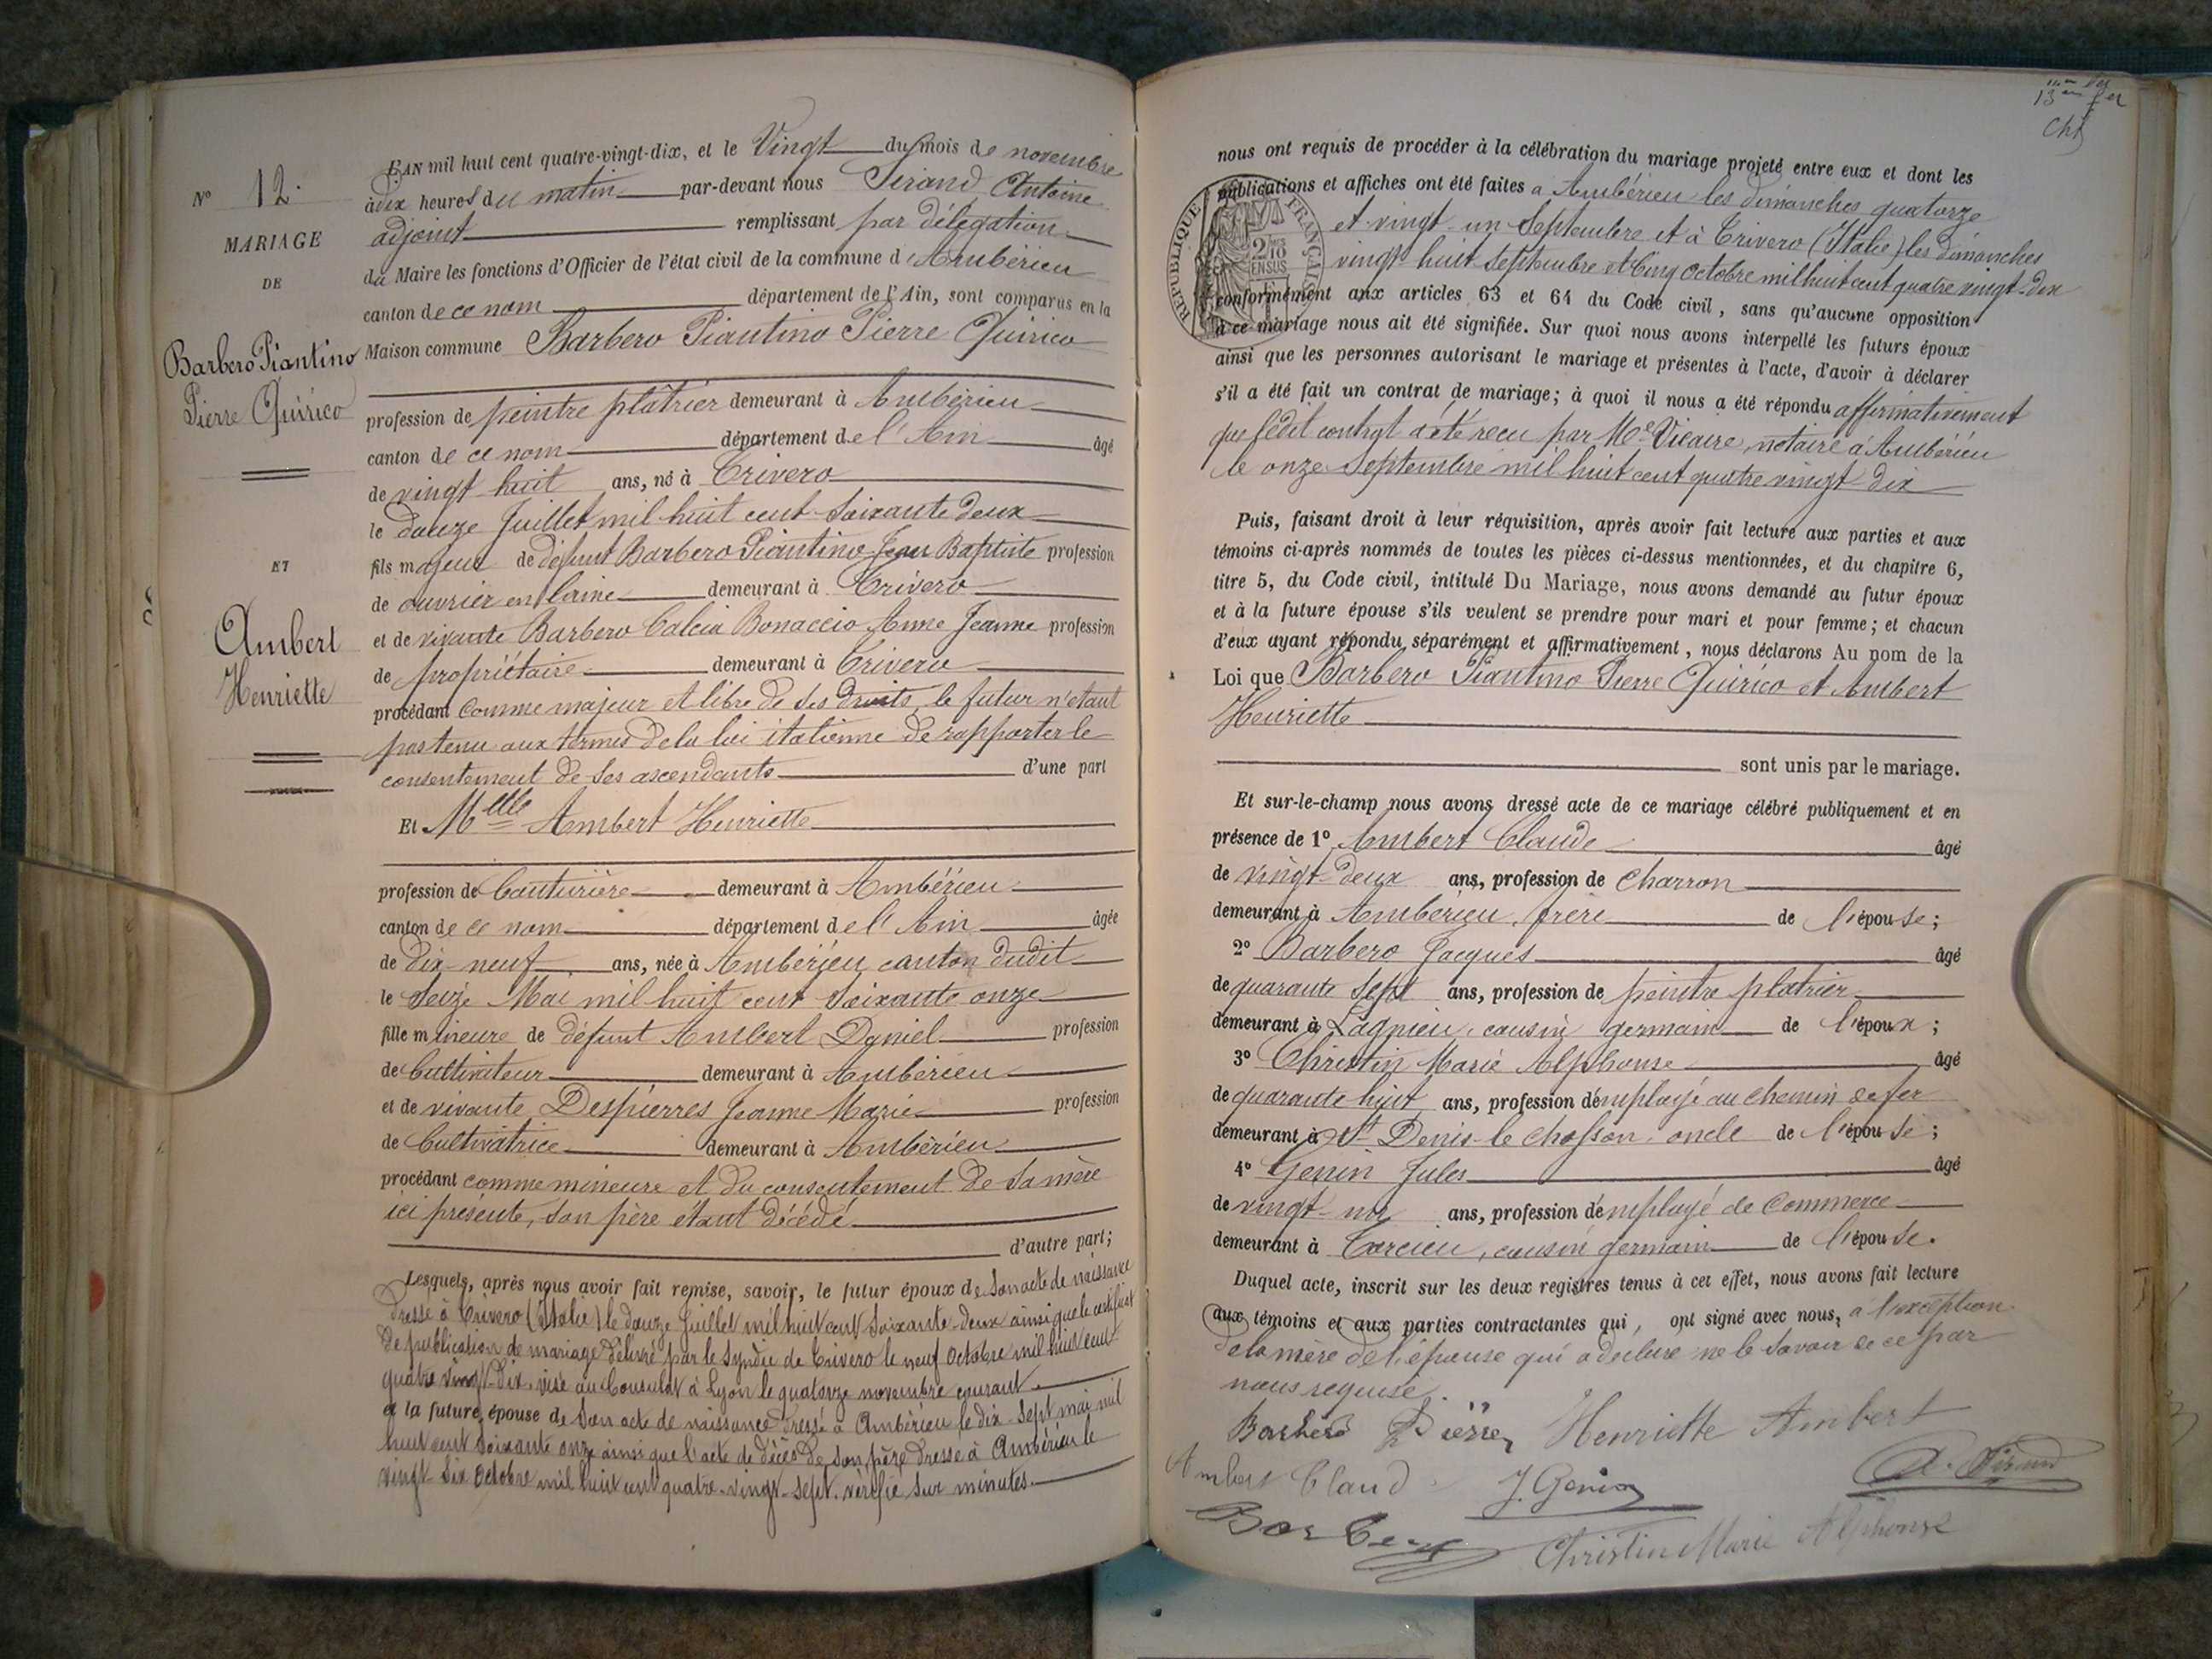 L'AN mil huit cent quatre-vingt-dix, et le Vingt du mois de novembre
à dix heures du matin par-devant nous Sirand Antoine
adjoint remplissant par délégation
du Maire les fonctions d'Officier de l'état civil de la commune d'Ambérieu
canton de ce nom département de l'Ain, sont comparus en la
Maison commune Barbero Piantino Pierre Quirico
profession de peintre plâtrier demeurant à Ambérieu
canton de ce nom département de l'Ain âgé
de vingt huit ans, né à Trivero
le douze Juillet mil huit cent soixante deux
fils majeur de défunt Barbero Piantino Jean Baptiste profession
de ouvrier en laine demeurant à Trivero
et de vivante Barbero Calcia Bonaccio Anne Jeanne profession
de propriétaire demeurant à Trivero
procédant comme majeur et libre de ses droits, le futur n'étant
pas tenu aux termes de la loi italienne de rapporter le
consentement de ses ascendants d'une part
Et Melle Ambert Henriette
profession de Couturière demeurant à Ambérieu
canton de ce nom département de l'Ain âgée
de dix-neuf ans, née à Ambérieu canton dudit
le Seize Mai mil huit cent soixante onze
fille mineure de défunt Ambert Daniel profession
de Cultivateur demeurant à Ambérieu
et de vivante Despierres Jeanne Marie profession
de Cultivatrice demeurant à Ambérieu
procédant comme mineure et du consentement de sa mère
ici présente, son père étant décédé
d'autre part;
Lesquels, après nous avoir fait remise, savoir, le futur époux de son acte de naissance
dressé à Trivero (Italie) le douze Juillet mil huit cent soixante-deux ainsi que le certificat
de publication de mariage délivré par le syndic de Trivero le neuf octobre mil huit cent
quatre vingt-dix, visé au Consulat à Lyon le quatorze novembre courant.
et la future épouse de son acte de naissance dressé à Ambérieu le dix-sept mai mil
huit cent soixante onze ainsi que l'acte de décès de son père dressé à Ambérieu le
vingt six octobre mil huit cent quatre-vingt-sept. vérifié sur minutes.
N° 12.
MARIAGE
DE
Barbero Piantino
Pierre Quirico
ET
Ambert
Henriette
nous ont requis de procéder à la célébration du mariage projeté entre eux et dont les
publications et affiches ont été faites a Ambérieu les dimanches quatorze
et vingt-un Septembre et à Trivero (Italie) les dimanches
vingt-huit Septembre et Cinq octobre mil huit cent quatre vingt-dix
conformément aux articles 63 et 64 du Code civil, sans qu'aucune opposition
à ce mariage nous ait été signifiée. Sur quoi nous avons interpellé les futurs époux
ainsi que les personnes autorisant le mariage et présentes à l'acte, d'avoir à déclarer
s'il a été fait un contrat de mariage; à quoi il nous a été répondu affirmativement
que ledit contrat a été reçu par Me Vicaire, notaire à Ambérieu
le onze Septembre mil huit cent quatre vingt dix
Puis, faisant droit à leur réquisition, après avoir fait lecture aux parties et aux
témoins ci-après nommés de toutes les pièces ci-dessus mentionnées, et du chapitre 6,
titre 5, du Code civil, intitulé Du Mariage, nous avons demandé au futur époux
et à la future épouse s'ils veulent se prendre pour mari et pour femme; et chacun
d'eux ayant répondu séparément et affirmativement, nous déclarons Au nom de la
Loi que Barbero Piantino Pierre Quirico et Ambert
Henriette
sont unis par le mariage.
Et sur-le-champ nous avons dressé acte de ce mariage célébré publiquement et en
présence de 1° Ambert Claude âgé
de vingt-deux ans, profession de Charron
demeurant à Ambérieu, frère de l'épouse;
2° Barbero Jacques âgé
de quarante sept ans, profession de peintre plâtrier
demeurant à Lagnieu, cousin germain de l'époux;
3° Christin Marie Alphonse âgé
de quarante huit ans, profession d'employé au chemin de fer
demeurant à St Denis-le Chosson, oncle de l'épouse;
4° Genin Jules âgé
de vingt- ans, profession d'employé de Commerce
demeurant à Torcieu, cousin germain de l'épouse.
Duquel acte, inscrit sur les deux registres tenus à cet effet, nous avons fait lecture
aux témoins et aux parties contractantes qui, ont signé avec nous, à l'exception
de la mère de l'épouse qui a déclaré ne le savoir de ce par
nous requise.
Barbero Pierre Henriette Ambert
Ambert Claud J. Genin A. Sirand
Barbero Christin Marie Alphonse
REPUBLIQUE FRANÇAISE
2/10 EN SUS